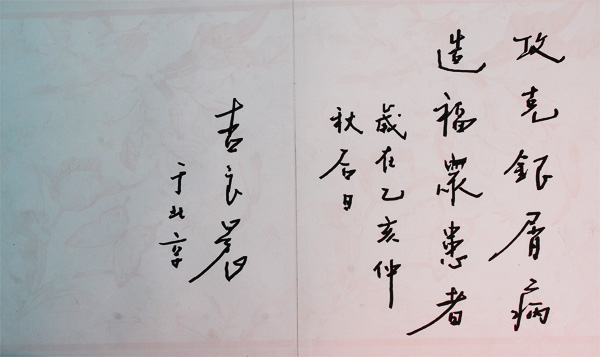 攻克銀屑病
造福眾患者
歲在乙亥仲
秋后日
吉良晨
于北京